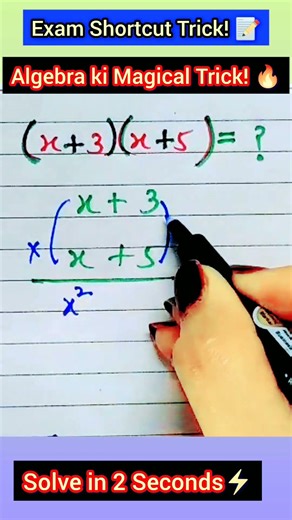 Exam Shortcut Trick! 📝
Algebra ki Magical Trick! 🔥
(x+3)(x+5)= ?
(x + 3
× x + 5)
x²
Solve in 2 Seconds⚡